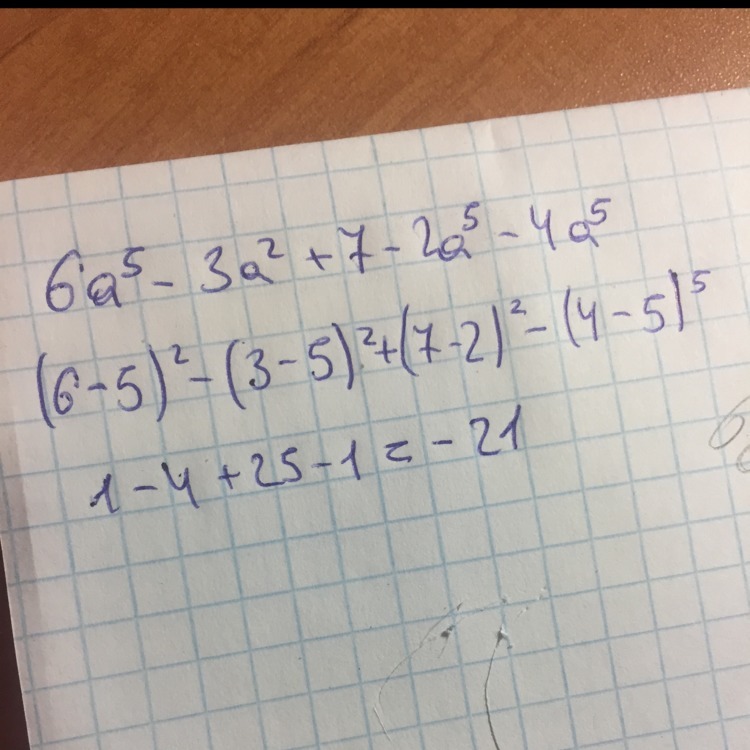 6a⁵ - 3a² + 7 - 2a⁵ - 4a⁵
(6-5)² - (3-5)² + (7-2)² - (4-5)⁵
1 - 4 + 25 - 1 = - 21